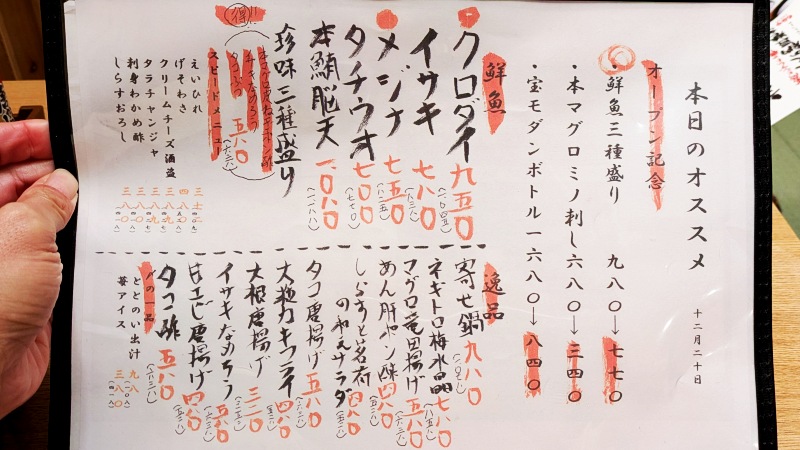 本日のオススメ
十二月二十日
オープン記念
・鮮魚三種盛り 九八〇→七七〇
・本マグロミノ刺し 六八〇→三四〇
・宝モダンボトル 一六八〇→八四〇
鮮魚
クロダイ 九五〇
イサキ 七八〇
メジナ 七五〇
タチウオ 七〇〇
本鮪脳天 一〇八〇
珍味三種盛り
五八〇
得!!
スピードメニュー
えいひれ
げそわさ
クリームチーズ酒盗
タラチャンジャ
刺身わかめ酢
しらすおろし
逸品
寄せ鍋 九八〇
ネギトロ梅水晶 七八〇
マグロ竜田揚げ 五八〇
あん肝ポン酢 四八〇
しらすと茗荷の和えサラダ
タコ唐揚げ 五八〇
大粒カキフライ 四八〇
大根唐揚げ 三二〇
イサキなめろう 五八〇
甘エビ唐揚げ 四八〇
タコ酢 五八〇
〆の一品
ととのい出汁 九八
苺アイス 三八〇